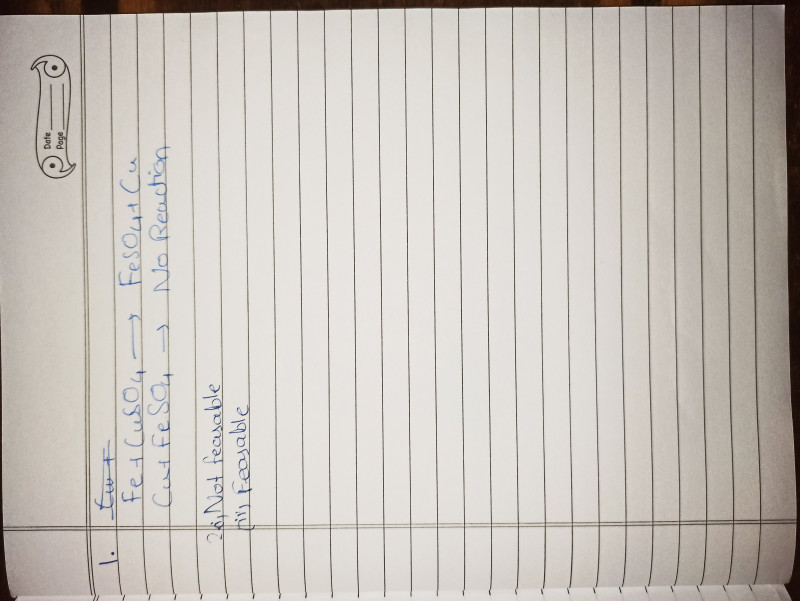 Date
Page
1.
Fe + CuSO4 → FeSO4 + Cu
Cu + FeSO4 → No Reaction
2(i) Not feasable
(ii) Feasable